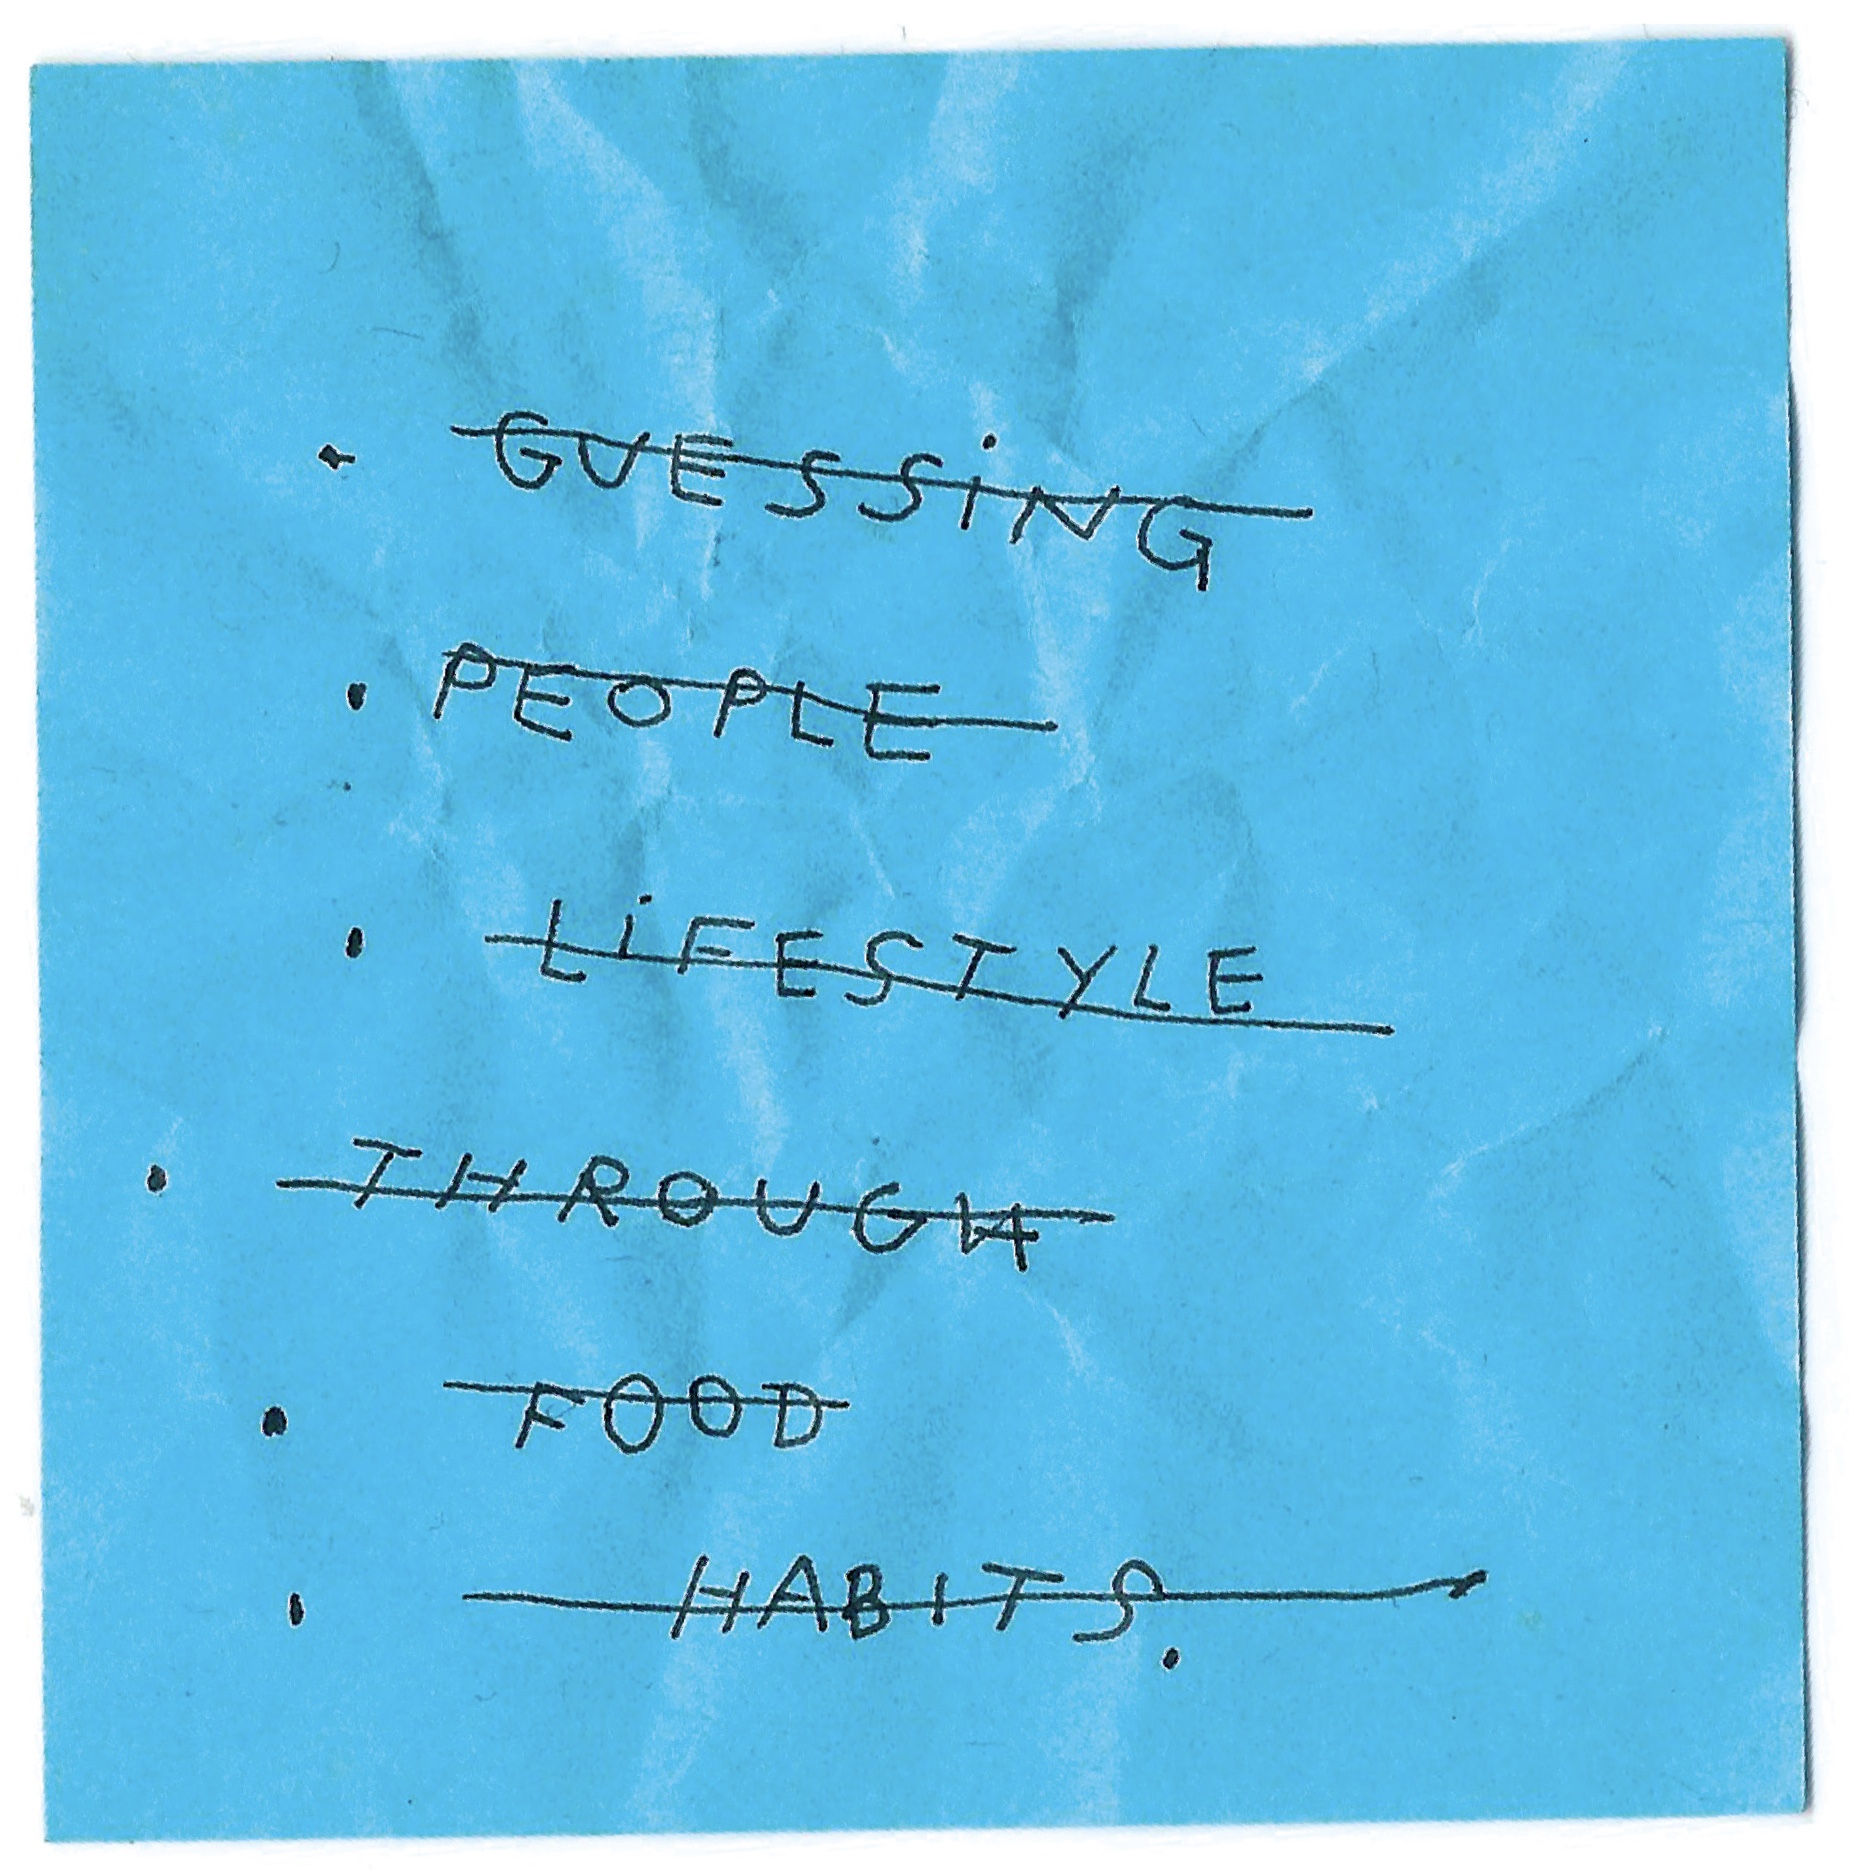 · GUESSiNG
· PEOPLE
· LiFESTYLE
· THROUGH
· FOOD
· HABITS.